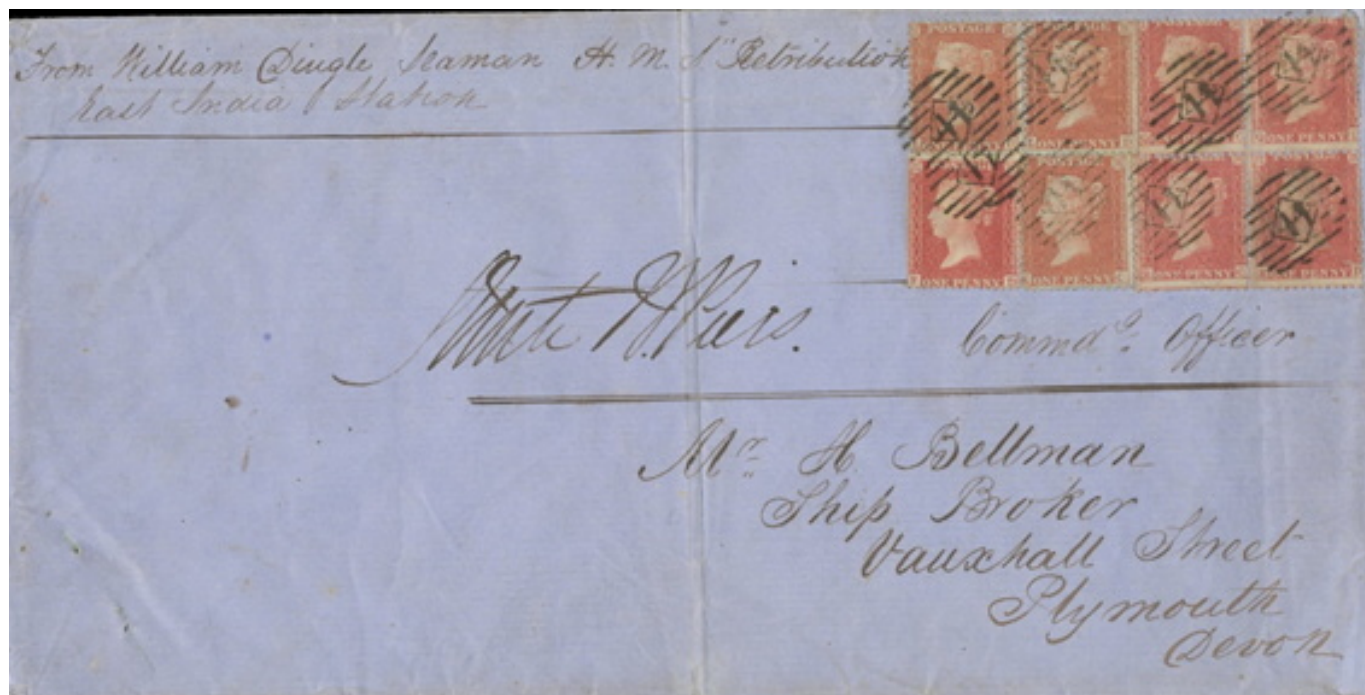 From William Dingle Seaman H. M. S "Retribution
East India Station
POSTAGE POSTAGE
ONE PENNY ONE PENNY
POSTAGE
ONE PENNY ONE PENNY ONE PENNY
Commdg. Officer
Mr. H. Bellman
Ship Broker
Vauxhall Street
Plymouth
Devon